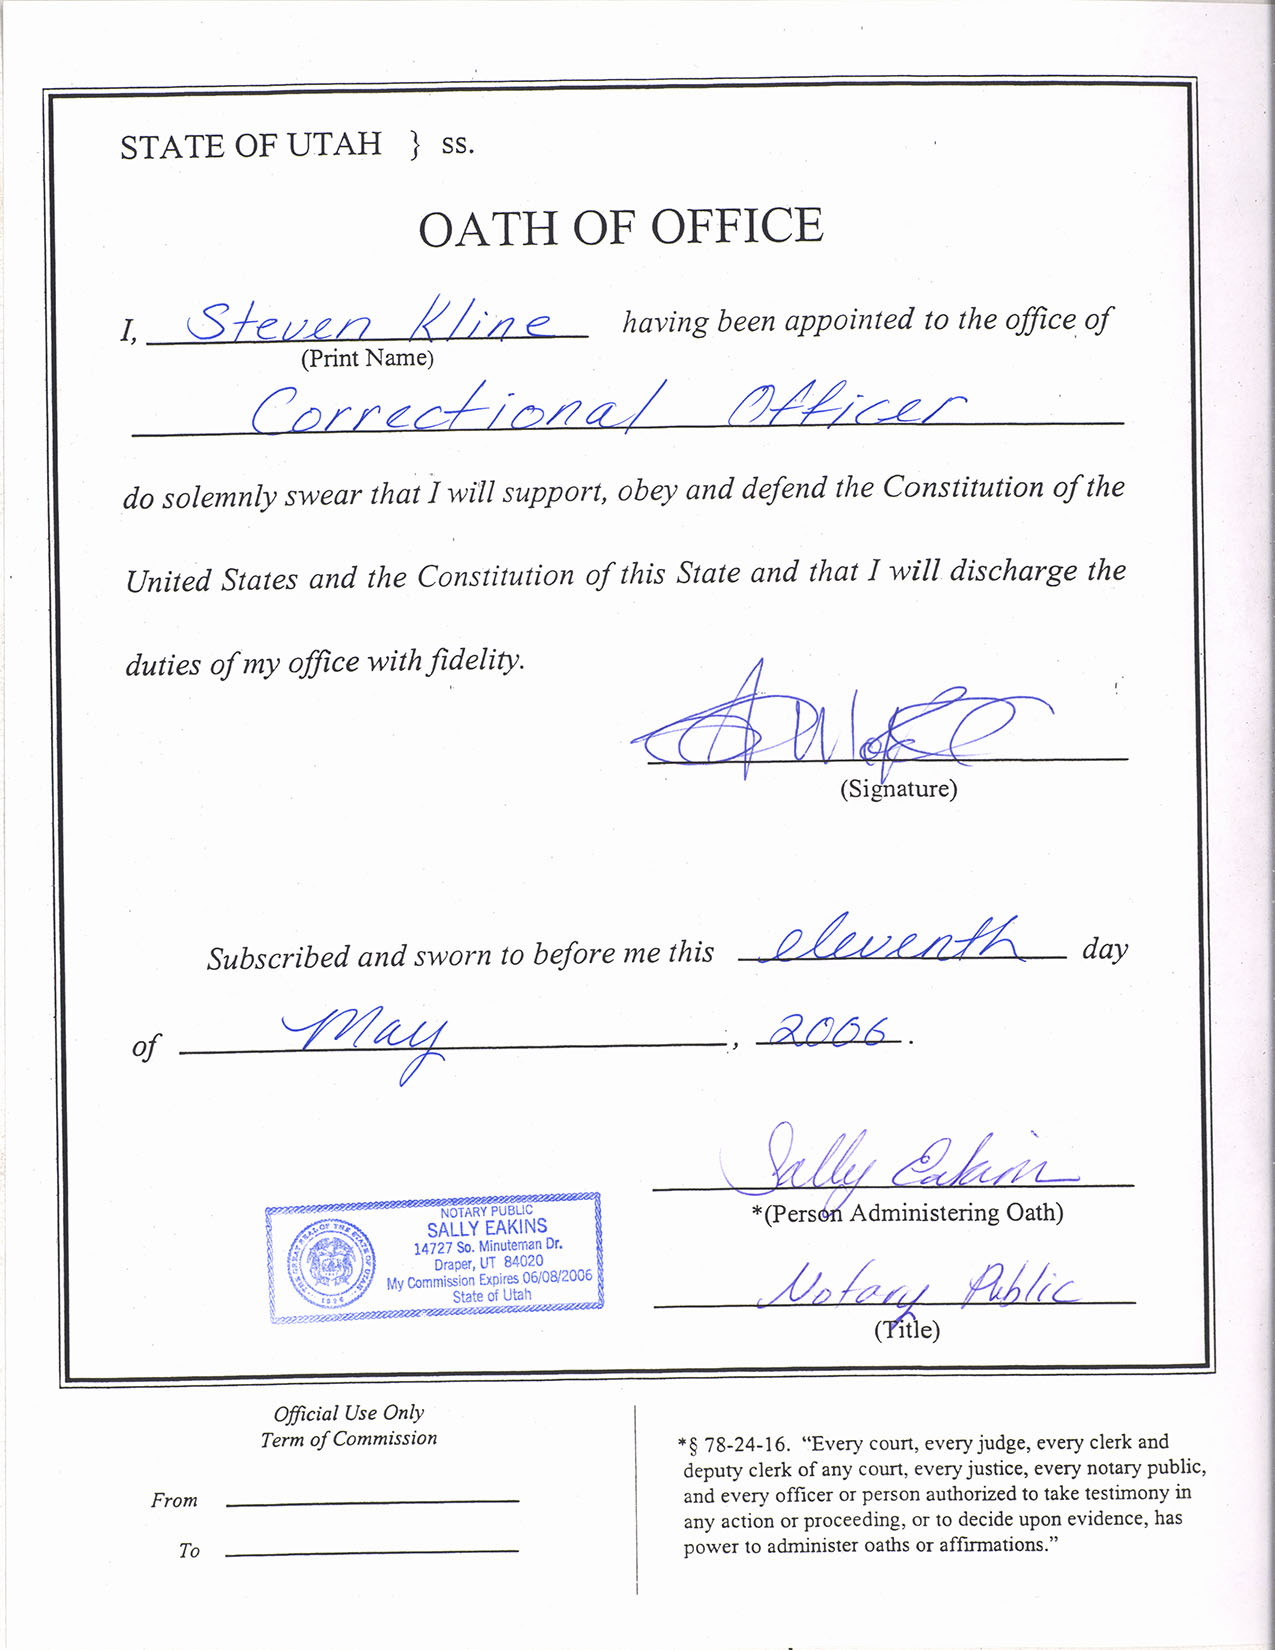 STATE OF UTAH } ss.
OATH OF OFFICE
I, Steven Kline having been appointed to the office of
(Print Name)
Correctional Officer
do solemnly swear that I will support, obey and defend the Constitution of the
United States and the Constitution of this State and that I will discharge the
duties of my office with fidelity.
(Signature)
Subscribed and sworn to before me this eleventh day
of May, 2006.
Sally Eakins
*(Person Administering Oath)
Notary Public
(Title)
THE GREAT SEAL OF THE STATE OF UTAH
1896
NOTARY PUBLIC
SALLY EAKINS
14727 So. Minuteman Dr.
Draper, UT 84020
My Commission Expires 06/08/2006
State of Utah
Official Use Only
Term of Commission
From
To
*§ 78-24-16. “Every court, every judge, every clerk and
deputy clerk of any court, every justice, every notary public,
and every officer or person authorized to take testimony in
any action or proceeding, or to decide upon evidence, has
power to administer oaths or affirmations.”